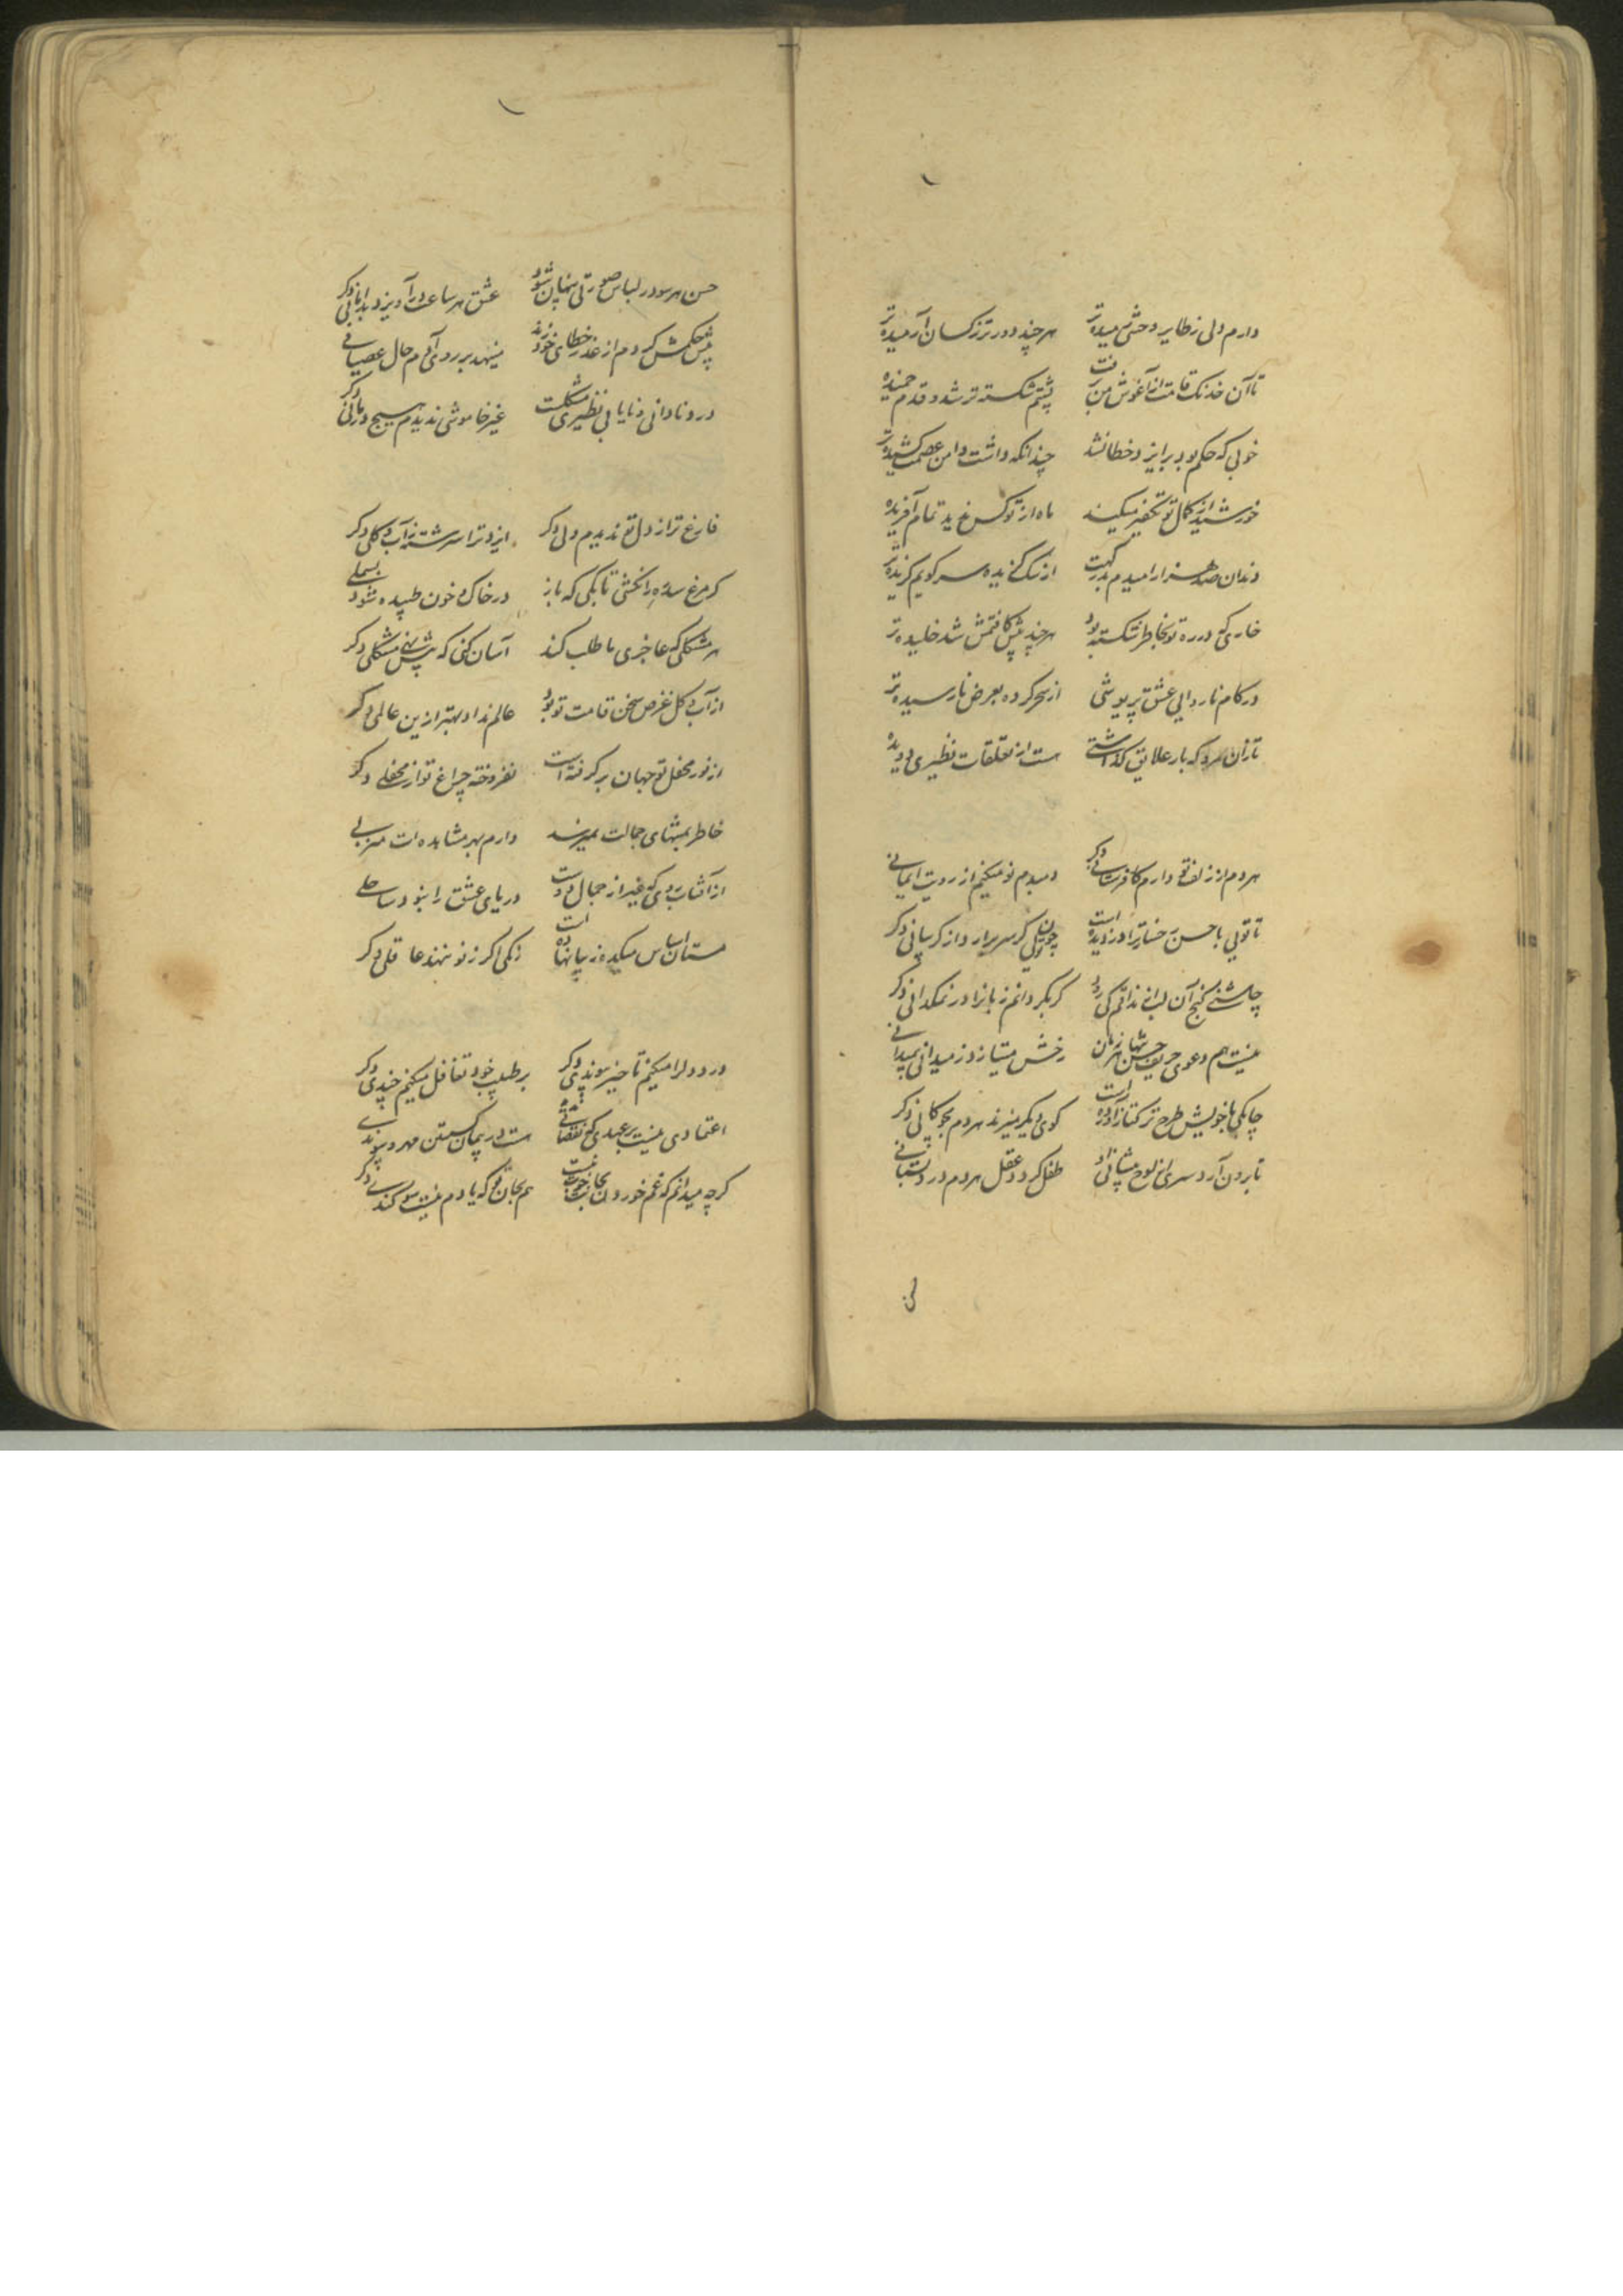 دارم دلی ز طایر وحشی رمیده تر هر چند دورتر ز کسان آرمیده تر
تا آن خدنک قامت از آغوش من برفت پشتم شکسته تر شد و قدم خمیده تر
خوبی که حکم بود بر ایزد خطا نشد چندانکه داشت دامن عصمت کشیده تر
خورشید از کمال تو تحقیر میکند ماه از تو کس ندید تمام آفریده تر
دندان صد هزار امیدم بدر کهت از سک کزیده سر کویم کزیده تر
خاری که در ره تو بخاطر شکسته بود هر چند پیش کافتمش شد خلیده تر
در کام ناروایی عشق پریوشی از سحر کرده بعرض نارسیده تر
تا زان سر و که بار علایق کذاشتی است از تعلقات نظیری دویده
هر دم از زلف تو دارم کافرستانی دکر دمبدم نو میکنم از رویت ایمانی
تا تویی با حسن رخسار ترا دزدیده است چون تویی کر سر برارد از کریبانی دکر
چاشنی کنج آن لب از مذاقم کی رود کر بکردانم زبانرا در نمکدانی دکر
نیست هم دعوی حریف حسن تنها هر زمان رخش میتازد ز میدانی بمیدانی
چابکی با خویش طرح ترکتاز آورده است کوی دیکر میزند هر دم بچوکانی دکر
تا برون آرد سری از لوح مشایی نژاد طفل کردد عقل هر دم در دبستانی
حسن هر سو در لباس صورتی پنهان شود عشق هر ساعت در آویزد بدامانی دکر
پیش حکمش کردم از عذر خطای خود زند مینهد بر روی آدم حال عصیانی
درد نادانی و نایابی نظیری مشکلست غیر خاموشی ندیدم هیچ درمانی دکر
فارغ تر از دل تو ندیدم دلی دکر ایزد ترا سرشته ز آب و کلی دکر
کر مرغ سدره را نکشی تا بکی که باز در خاک و خون طپیده شود بسملی
هر مشکلی که عاجزی ما طلب کند آسان کنی که پیش نهی مشکلی دکر
از آب و کل غرض سخن قامت تو بود عالم نداد بهتر ازین عالمی دکر
از نور محفل تو جهان بر کرفته است نفروخته چراغ تو از محفلی دکر
خاطر بمنتهای جمالت نمیرسد دارم بهر مشاهده ات منزلی
از آفتاب روی که غیر از جمال دوست دریای عشق را نبود ساحلی
مستان اساس میکده ز پا نهاده است زنکی اکر ز نو ننهد عاقلی دکر
درد دلرا میکنم تا خیز پیوندی دکر بر طبیب خود تغافل میکنم چندی دکر
اعتمادی نیست بر عهدی که نقصانی نه است در پیمان کسستن مهر و پیوندی
کرچه میدانم که غم خوردن بجانت خوب نیست هم بجان تو که یادم نیست سوکندی دکر